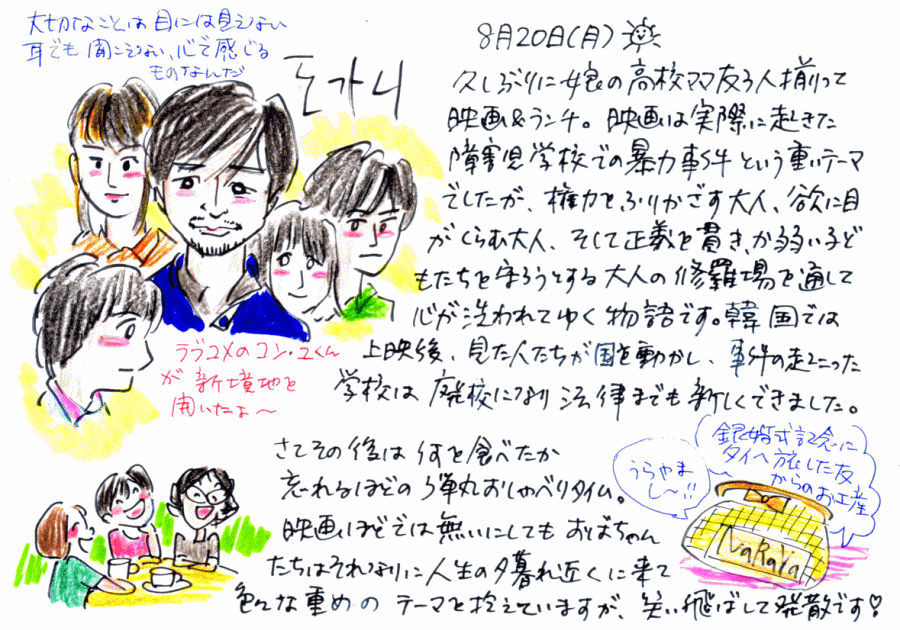 大切なことは目には見えない
耳でも聞こえない、心で感じる
ものなんだ
도가니
8月20日(月)
久しぶりに娘の高校ママ友3人揃って
映画&ランチ。映画は実際に起きた
障害児学校での暴力事件という重いテーマ
でしたが、権力をふりかざす大人、欲に目
がくらむ大人、そして正義を貫き、か弱い子ど
もたちを守ろうとする大人の修羅場を通して
心が洗われてゆく物語です。韓国では
上映後、見た人たちが国を動かし、事件の起こった
学校は廃校になり法律までも新しくできました。
ラブコメのコン・ユくん
が新境地を
開いたよ〜
さてその後は何を食べたか
忘れるほどの弾丸おしゃべりタイム。
映画ほどでは無いにしてもおばちゃん
たちはそれなりに人生の夕暮れ近くに来て
色んな重めのテーマを抱えていますが、笑い飛ばして発散です♡
銀婚式記念に
タイへ旅した友
からのお土産
うらやま
し〜!!
NaRaYa